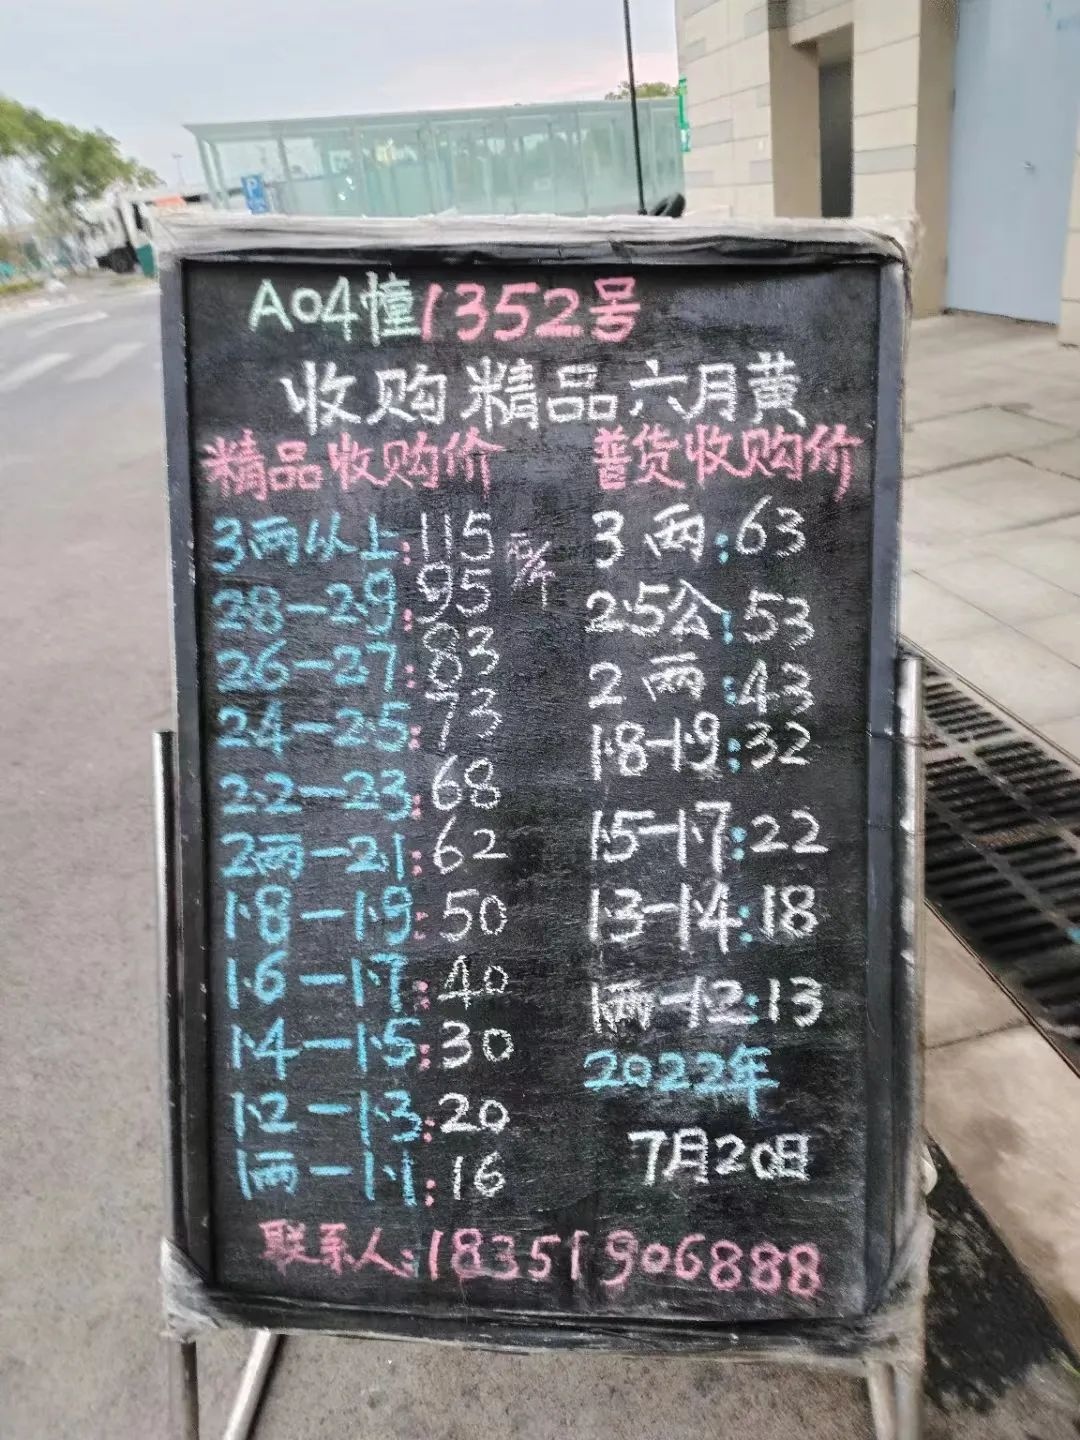 A04幢1352号
收购精品六月黄
精品收购价
3两以上:115元/斤
2.8-2.9:95
2.6-2.7:83
2.4-2.5:73
2.2-2.3:68
2两-2.1:62
1.8-1.9:50
1.6-1.7:40
1.4-1.5:30
1.2-1.3:20
1两-1.1:16
普货收购价
3两:63
2.5公:53
2两:43
1.8-1.9:32
1.5-1.7:22
1.3-1.4:18
1两-1.2:13
2022年
7月20日
联系人:18351906888
P